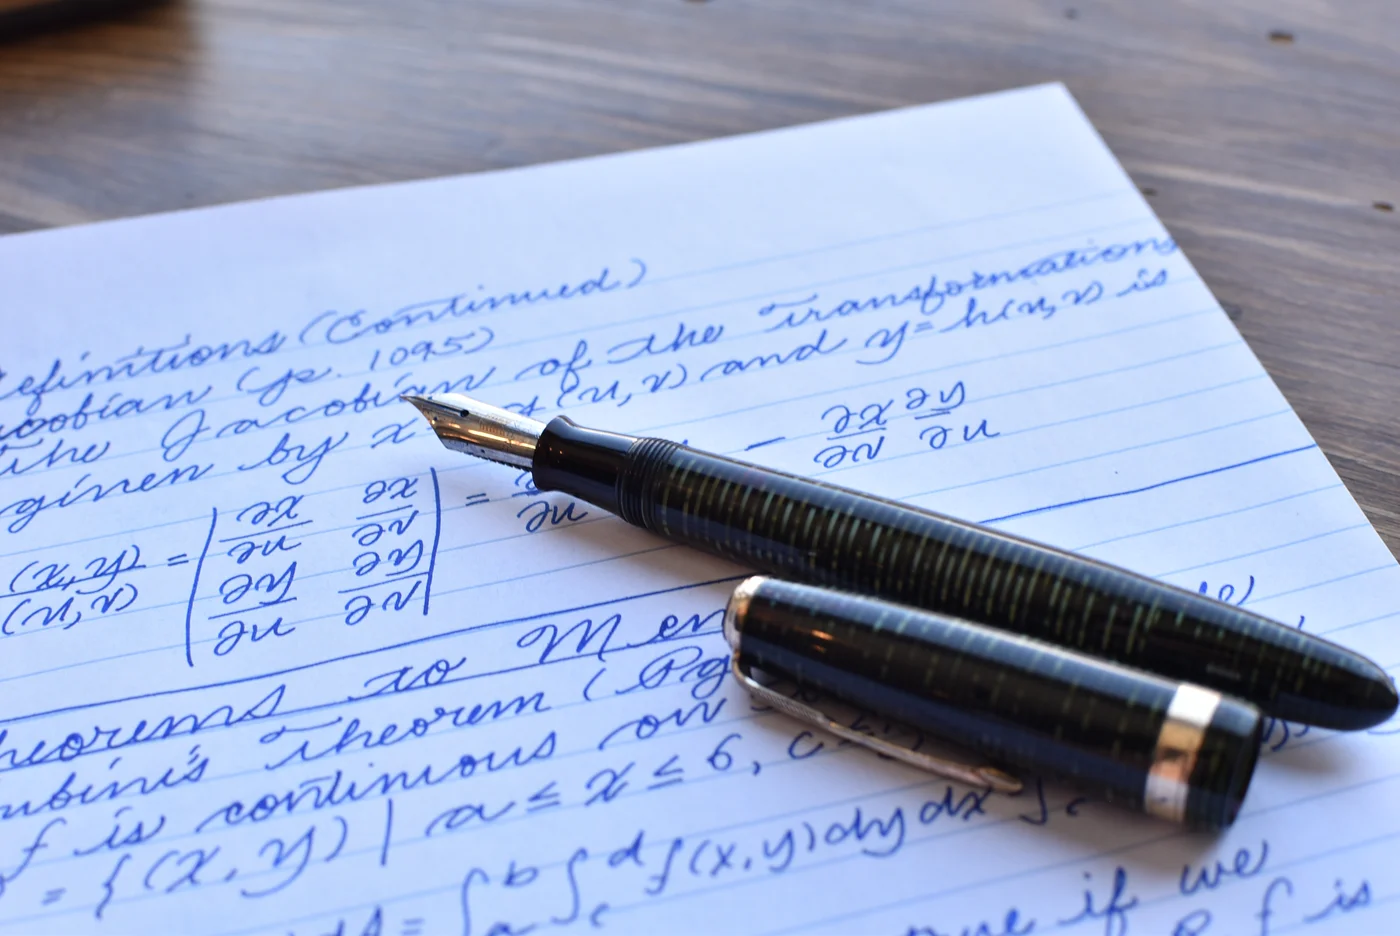 efinitions (Continued)
acobian (p. 1095)
the Jacobian of the transformations
given by x (u, v) and y = h(u, v) is
(x, y) = | ∂x ∂x | = − ∂x ∂y
(u, v) ∂u ∂v ∂u ∂v ∂u
∂y ∂y
∂u ∂v
heorems to Mem
ubini's Theorem (Pg
f is continuous on
= {(x, y) | a ≤ x ≤ b, c ≤
= ∫ b a ∫ d c f(x, y) dy dx ∫ c
if we
f is